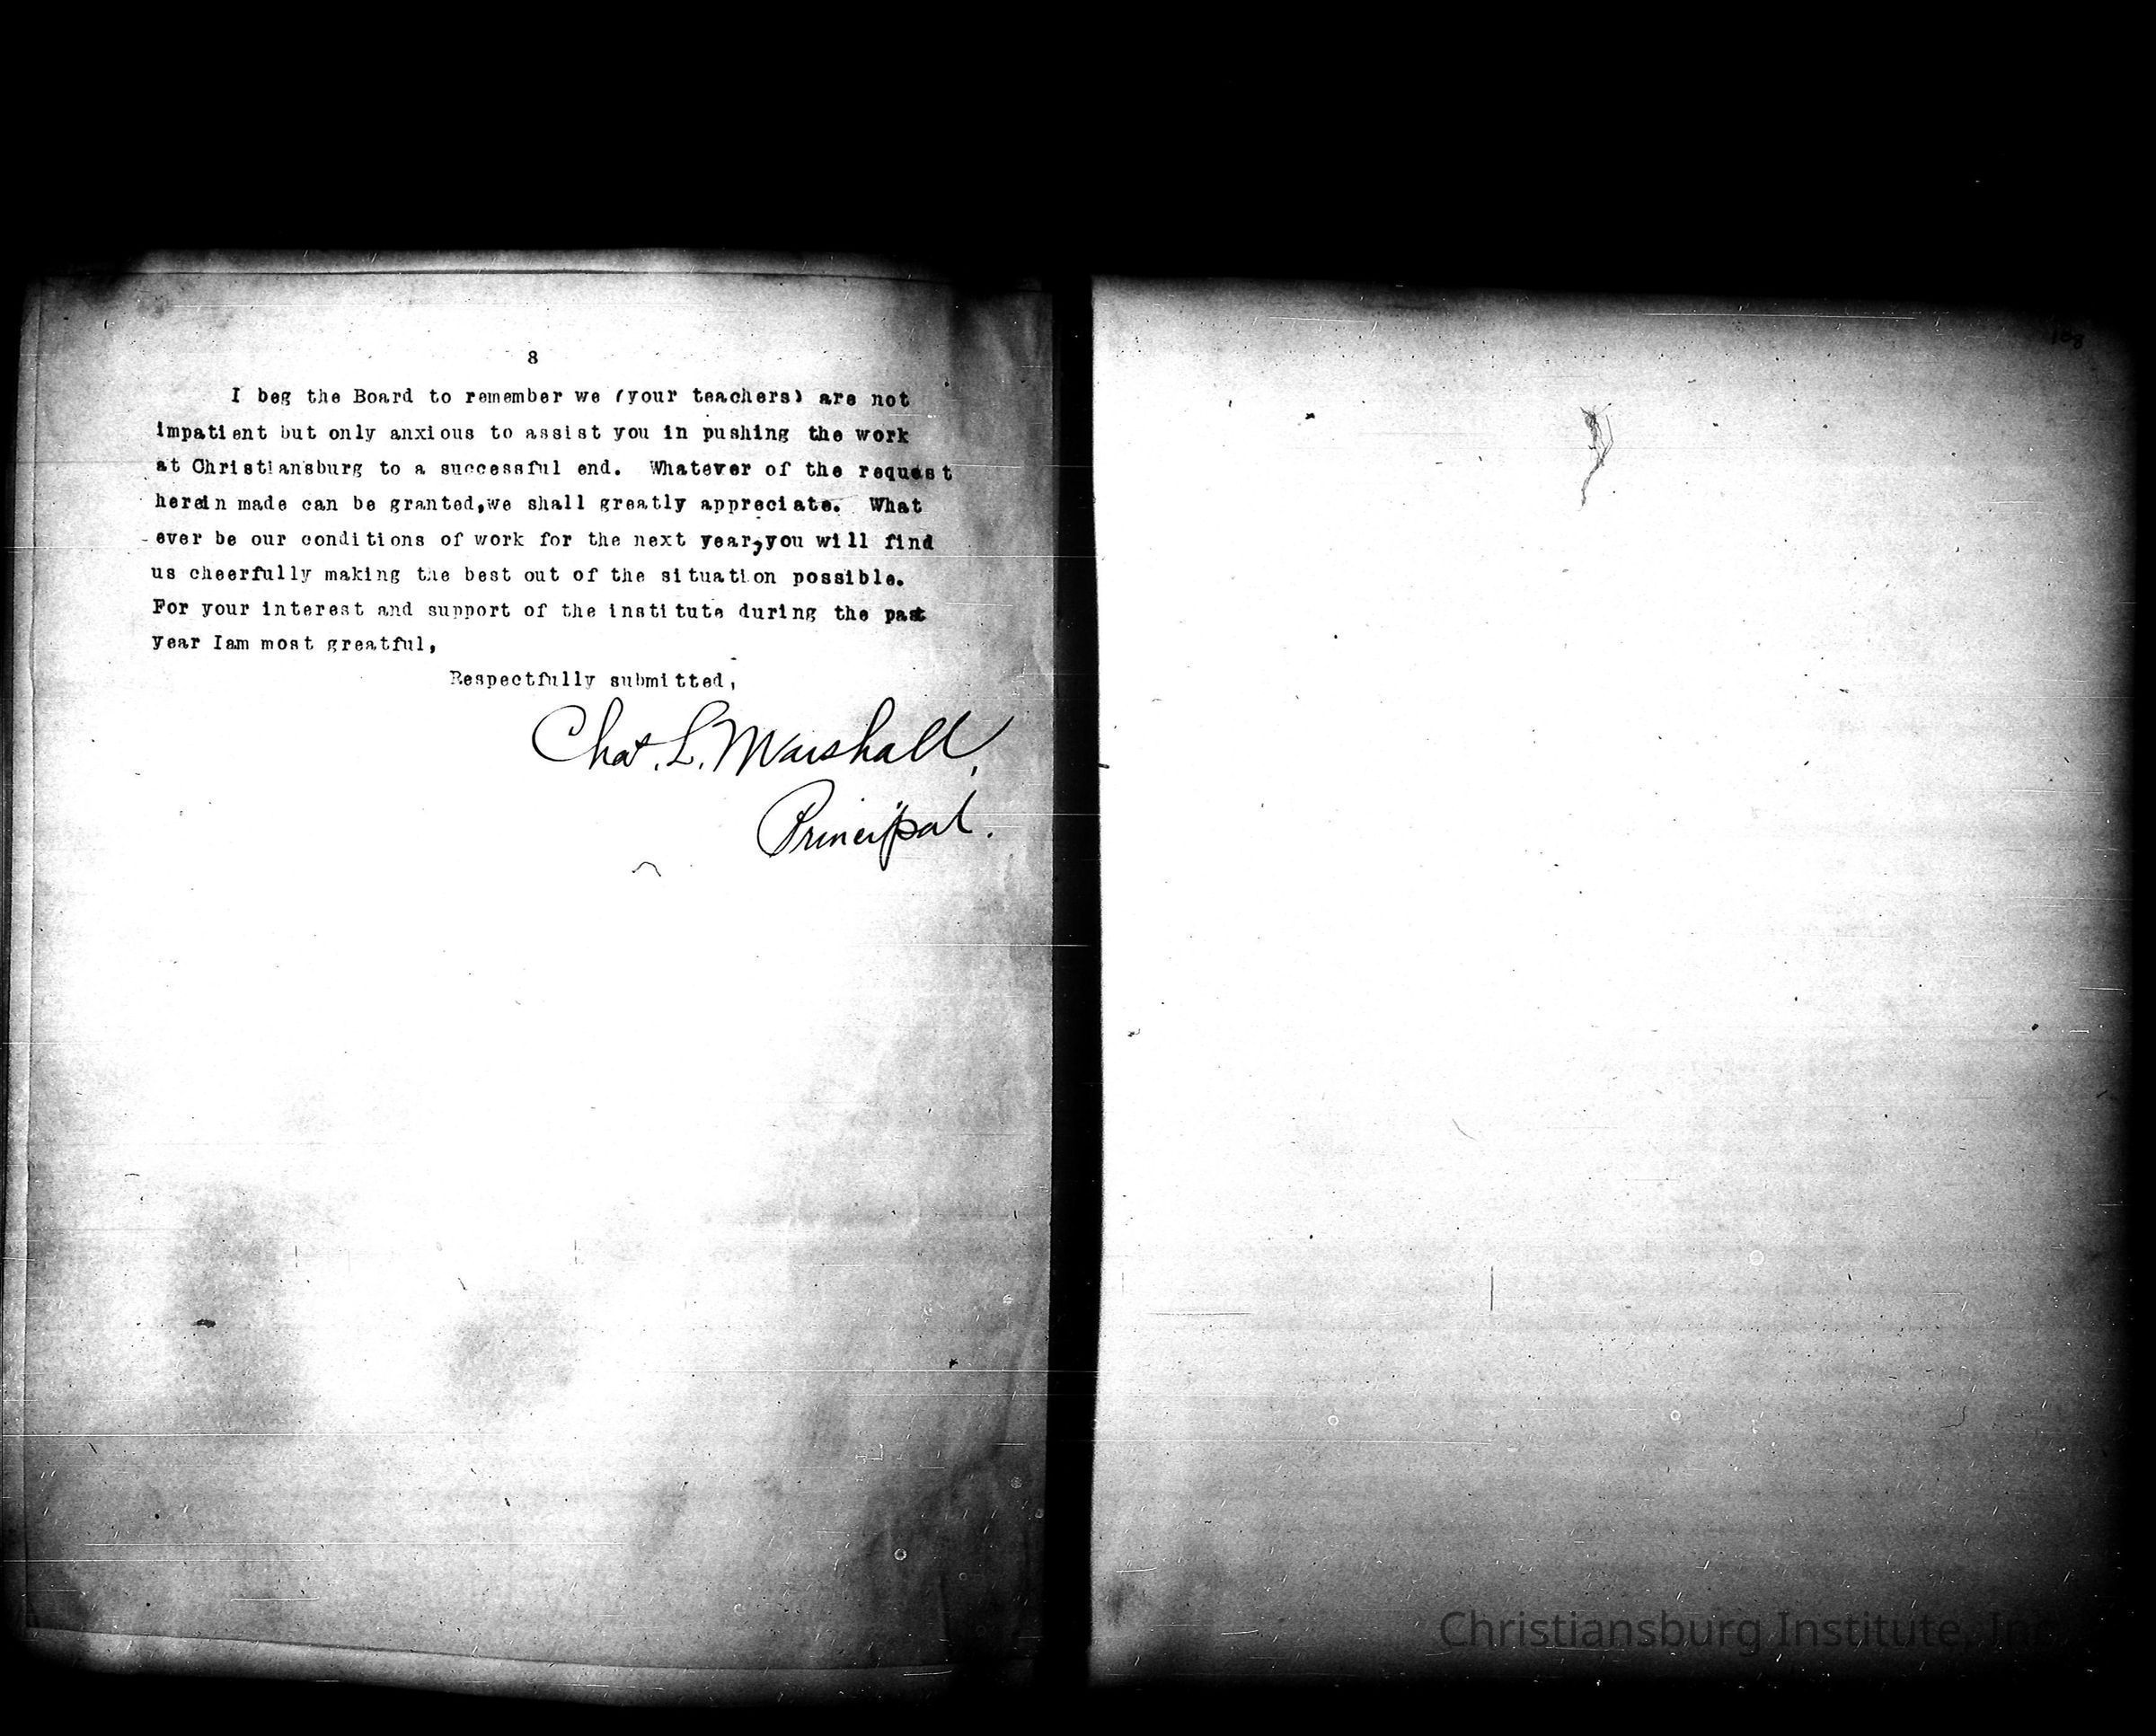 8
I beg the Board to remember we (your teachers) are not
impatient but only anxious to assist you in pushing the work
at Christiansburg to a successful end. Whatever of the request
herein made can be granted,we shall greatly appreciate. What
ever be our conditions of work for the next year,you will find
us cheerfully making the best out of the situation possible.
For your interest and support of the institute during the past
year Iam most greatful,
Respectfully submitted,
Chas. L. Marshall,
Principal.
188
Christiansburg Institute, Inc